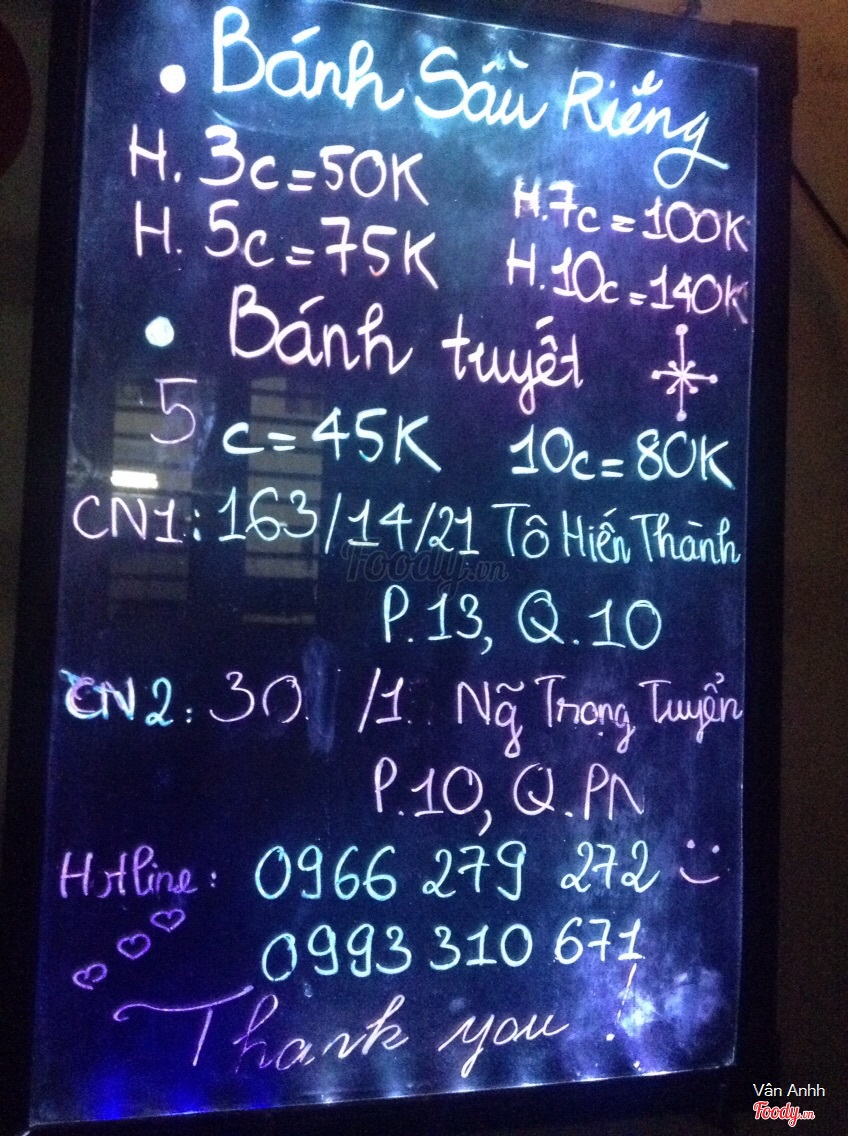 Bánh Sầu Riêng
H. 3c = 50K
H. 7c = 100K
H. 5c = 75K
H. 10c = 140K
Bánh tuyết
5 c = 45K 10c = 80K
CN1: 163/14/21 Tô Hiến Thành
P.13, Q.10
CN2: 30 /1 Ng~ Trọng Tuyển
P.10, Q.PN
Hotline: 0966 279 272
0993 310 671
Thank you !
Foody.vn
Vân Anhh
Foody.vn